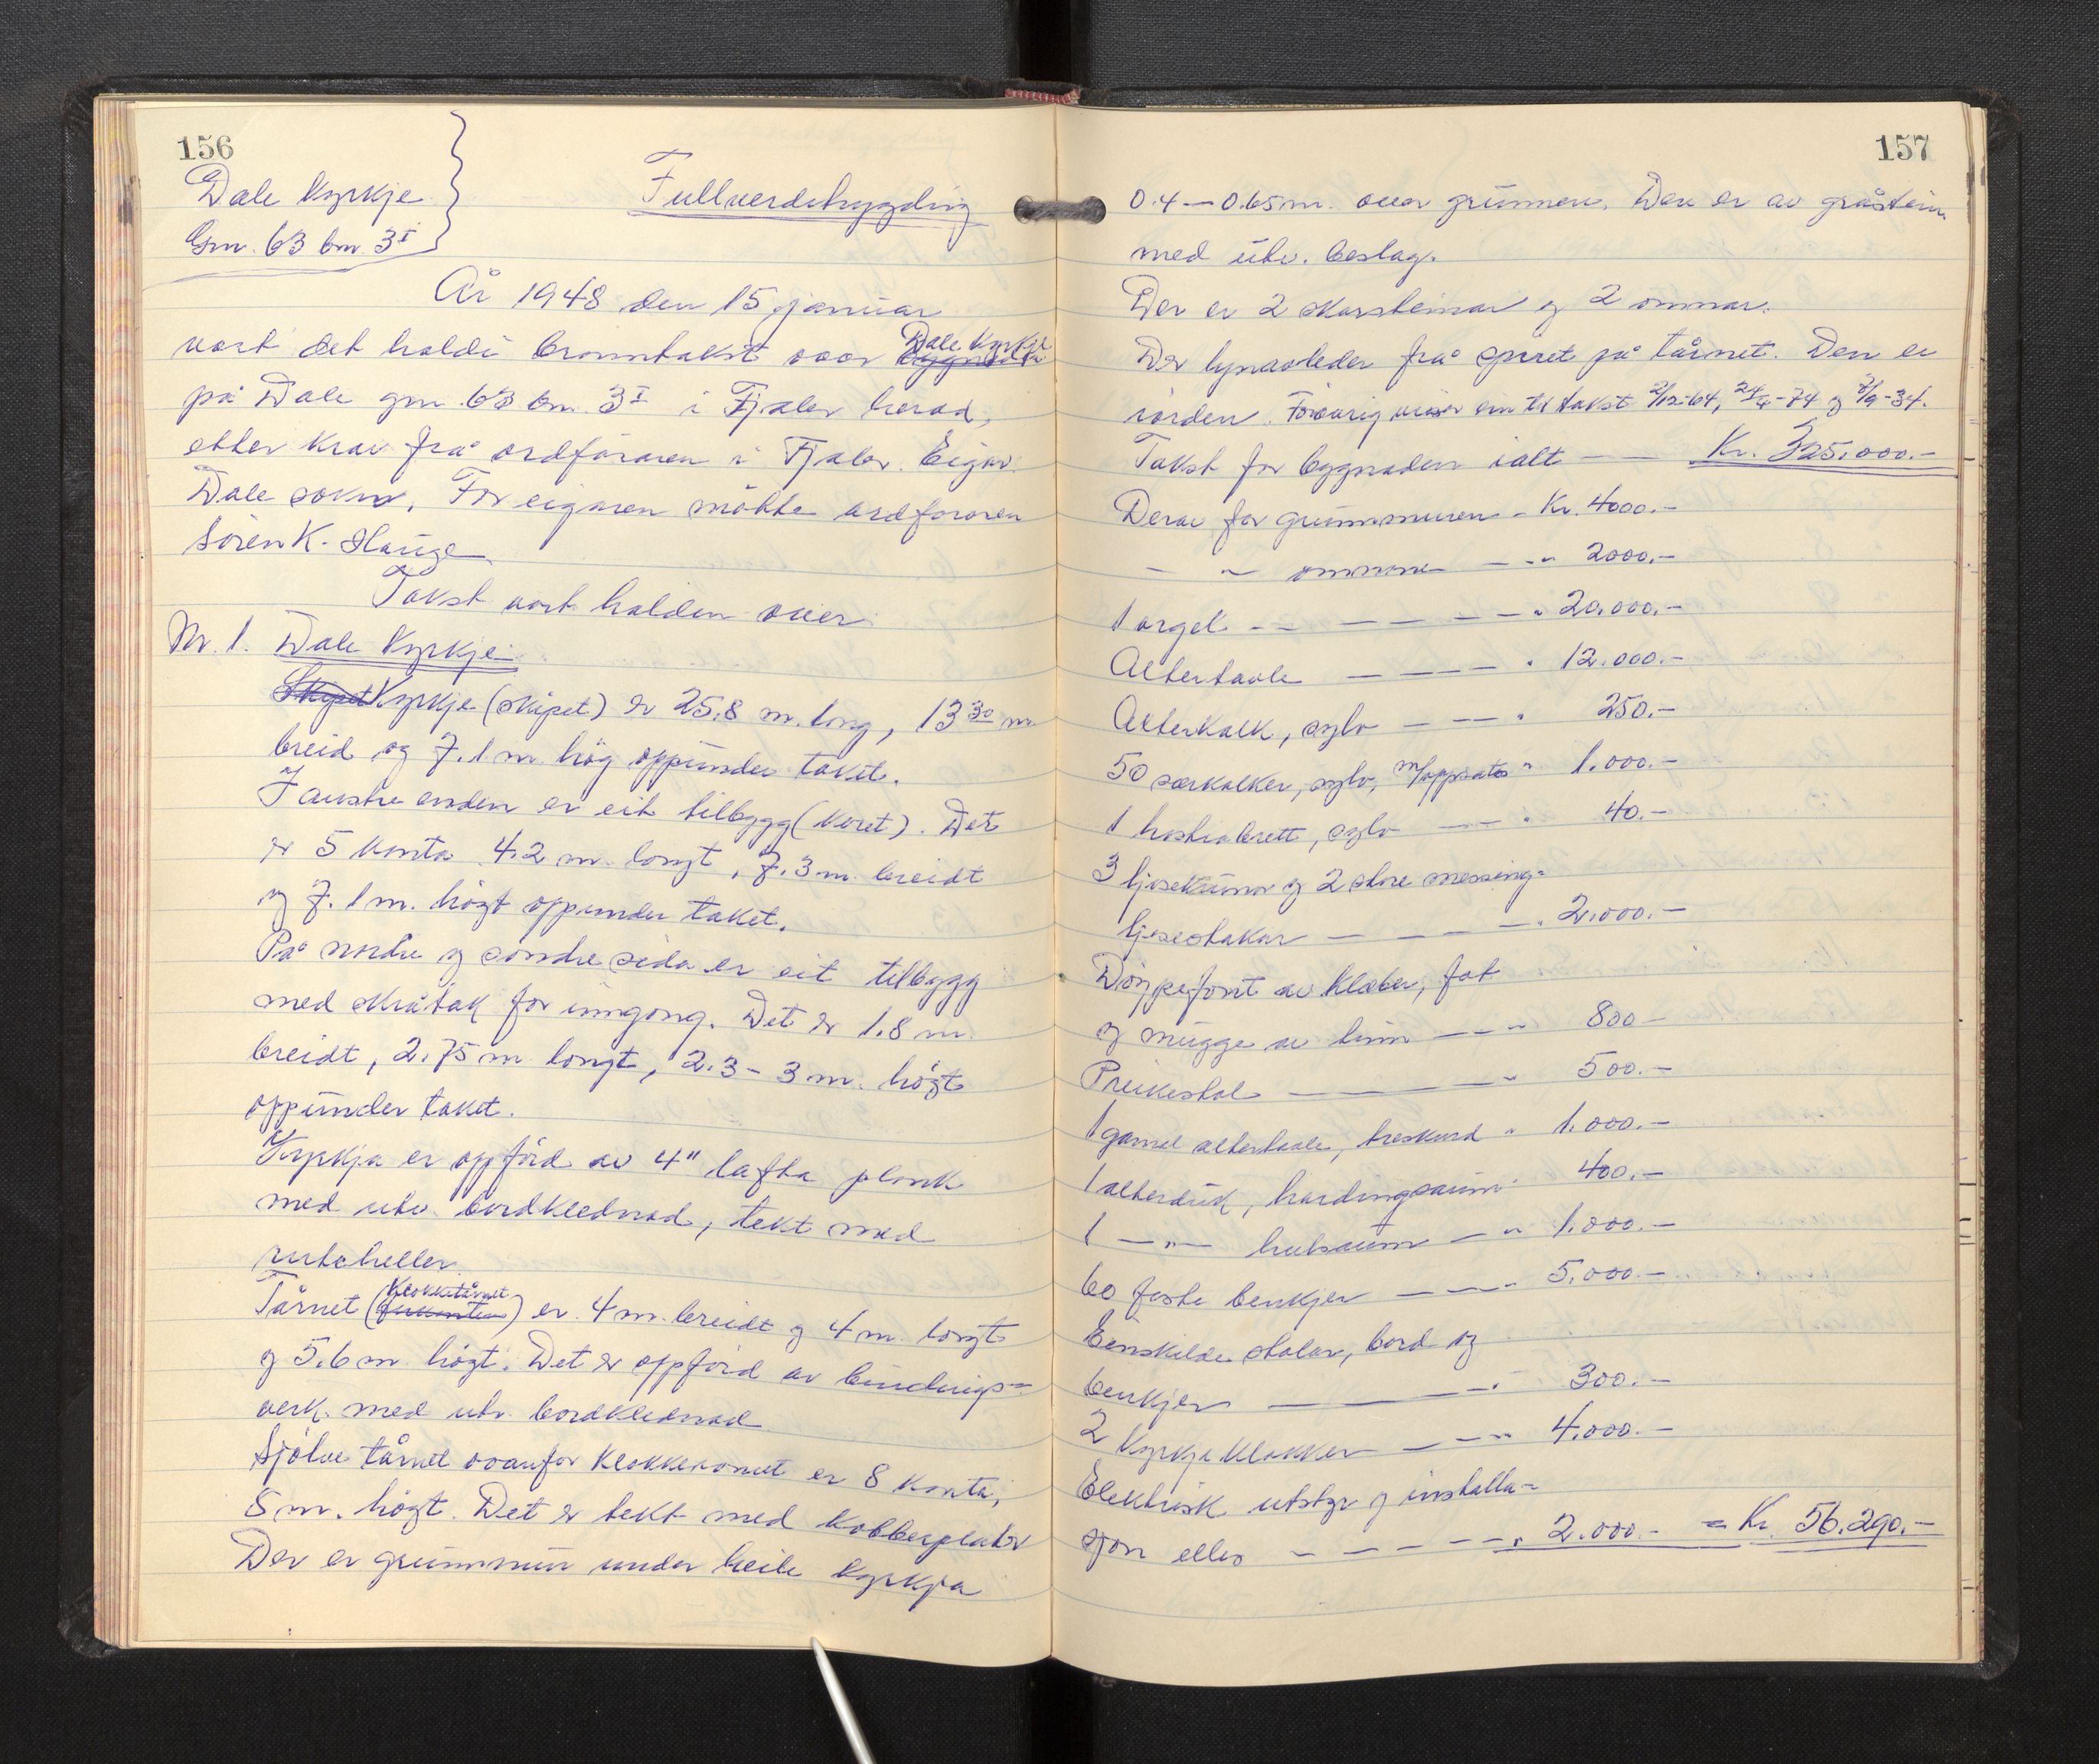 156
Dale Kyrkje
Gnr. 63 bnr. 3I
Fullverdebygding
År 1948 den 15 januar
vart det haldi branntakst over Dale Kyrkje
på Dale gnr. 63 bnr. 3I i Fjaler herad,
etter krav frå ordføraren i Fjaler. Eigar:
Dale sokn. For eigaren møtte ordføraren
Sören K. Hauge.
Takst vart halden over
Nr. 1. Dale Kyrkje.
Skipet Kyrkje (skipet) er 25,8 m. long, 13 30 m
breid og 7.1 m høg oppunder taket.
I austre enden er eit tilbygg (koret). Det
er 5 kanta 4.2 m. langt, 7.3 m. breidt
og 7.1 m. høgt oppunder taket.
På nordre og søndre sida er eit tilbygg
med skråtak for inngong. Det er 1.8 m.
breidt, 2.75 m langt, 2.3 - 3 m. høgt
oppunder taket.
Kyrkja er oppførd av 4" lafta plank
med utv. bordklednad, tekt med
ruteheller.
Tårnet (Klokketårnet) er 4 m. breidt og 4 m. langt
og 5.6 m høgt. Det er oppførd av bindings=
verk med utv. bordklednad
Sjølve tårnet ovanfor klokkeromet er 8 kanta,
8 m. høgt. Det er tekt med kobberplater
Der er grunnmur under heile kyrkja
157
0.4 — 0.65 m. over grunnen. Den er av gråstein
med utv. beslag.
Der er 2 skorsteinar og 2 omnar.
Der lynavleder frå spiret på tårnet. Den er
iorden. Forøvrig viser ein til takst 2/12-64, 24/4-74 og 7/9-34.
Takst for bygnaden ialt — — Kr. 325.000.-
Derav for grunnmuren - Kr. 4000.-
- " - omnane — - " 2000.-
1 orgel - - — — — - " 20.000.-
Altertavle — — — " 12.000.-
Alterkalk, sylv — — - " 250.-
50 særkalker, sylv, m/oppsats " 1.000.-
1 hostiebrett, sylv — - " 40.-
3 ljosekrunor og 2 store messing=
ljosestakar — — — — - " 2.000.-
Døypefont av kleber, fat
og mugge av tinn — — " 800 -
Preikestol ——— — " 500.-
1 gamal altertavle, treskurd " 1.000.-
1 alterduk, hardingsaum " 400.-
1 — " — holsaum — " 1.000.-
60 faste benkjer — — " 5.000.-
Einskilde stolar, bord og
benkjer ——— — " 300.-
2 Kyrkjeklokker — - " 4.000.-
Elektrisk utstyr og installa=
sjon elles - — — — - " 2.000.- = Kr. 56.290.-